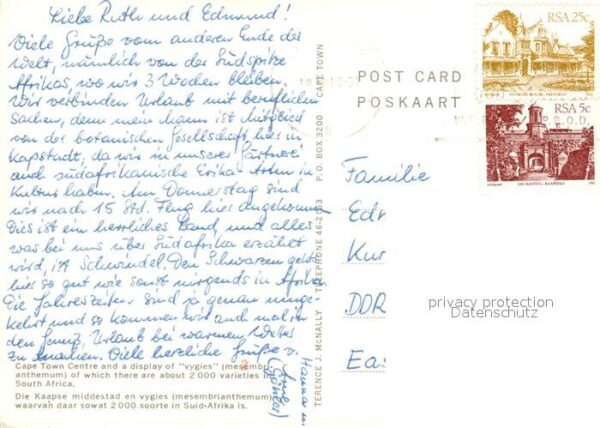 Liebe Ruth und Edmund!
Viele Grüße vom anderen Ende der
Welt, nämlich von der Südspitze
Afrikas, wo wir 3 Wochen bleiben.
Wir verbinden Urlaub mit beruflichen
Sachen, denn mein Mann ist Mitglied
von der botanischen Gesellschaft hier in
Kapstadt, da wir in unserer Gärtnerei
auch südafrikanische Erika Arten in
Kultur haben. Am Donnerstag sind
wir nach 15 Std. Flug hier angekommen.
Dies ist ein herrliches Land, und alles
was bei uns über Südafrika erzählt
wird, ist Schwindel. Den Schwarzen geht
hier so gut wie sonst nirgends in Afrika.
Die Jahreszeiten sind ja genau umge-
kehrt und so kommen wir auch mal in
den Genuß, Urlaub bei warmem Wetter
zu machen. Viele herzliche Grüße v.
Cape Town Centre and a display of "vygies" (mesembri-
anthemum) of which there are about 2 000 varieties in
South Africa.
Die Kaapse middestad en vygies (mesembrianthemum)
waarvan daar sowat 2 000 soorte in Suid-Afrika is.
TERENCE J. McNALLY TELEPHONE P.O. BOX 3200 CAPE TOWN
POST CARD
POSKAART
RSA 25c
RSA 5c
Familie
Edr
Kur
DDR
Ea:
privacy protection
Datenschutz